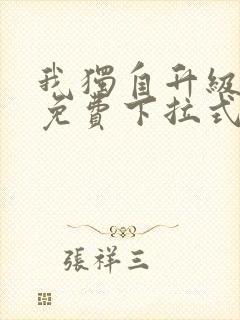 我獨自升級
免費下拉式
張祥三